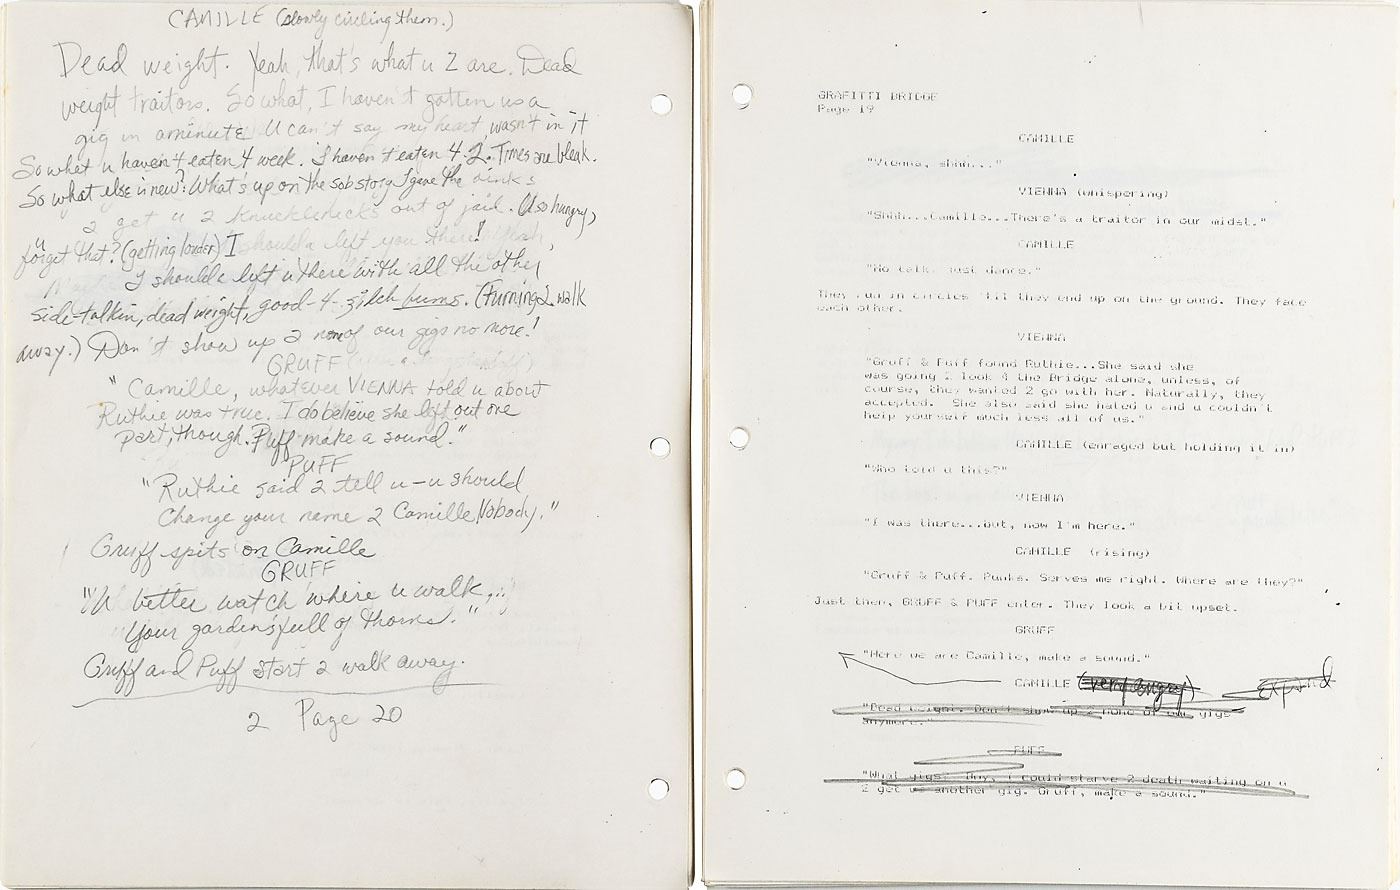 CAMILLE (slowly circling them.)
Dead weight. Yeah, that's what u 2 are. Dead
weight traitors. So what, I haven't gotten us a
gig in a minute U can't say my heart wasn't in it
So what u haven't eaten 4 week. I haven't eaten 4 2. Times are bleak.
So what else is new? What's up on the sob story I gave the oinks
2 get u 2 knuckleheads out of jail. (Also hungry,
u
forget that? (getting louder) I shoulda left you there! Yeah,
I shoulda left u there with all the other
side-talkin, dead weight, good-4-zilch bums. (Turning 2 walk
away.) Don't show up 2 none of our gigs no more!
GRUFF
"Camille, whatever VIENNA told u about
Ruthie was true. I do believe she left out one
part, though. Puff make a sound."
PUFF
"Ruthie said 2 tell u-u should
change your name 2 Camille Nobody."
Gruff spits on Camille
GRUFF
"U better watch where u walk,
Your garden's full of thorns."
Gruff and Puff start 2 walk away.
2 Page 20
GRAFITTI BRIDGE
Page 19
CAMILLE
"Vienna, shhh..."
VIENNA (whispering)
"Shhh...Camille...There's a traitor in our midst."
CAMILLE
"No talk. Just dance."
They run in circles 'til they end up on the ground. They face
each other.
VIENNA
"Gruff & Puff found Ruthie...She said she
was going 2 look 4 the Bridge alone, unless, of
course, they wanted 2 go with her. Naturally, they
accepted. She also said she hated u and u couldn't
help yourself much less all of us."
CAMILLE (enraged but holding it in)
"Who told u this?"
VIENNA
"I was there...but, now I'm here."
CAMILLE (rising)
"Gruff & Puff. Punks. Serves me right. Where are they?"
Just then, GRUFF & PUFF enter. They look a bit upset.
GRUFF
"Here we are Camille, make a sound."
CAMILLE (very angry) expand
"Dead weight. Don't show up 2 none of our gigs
anymore."
PUFF
"What gigs? Boy, I could starve 2 death waiting on u
2 get us another gig. Gruff, make a sound."